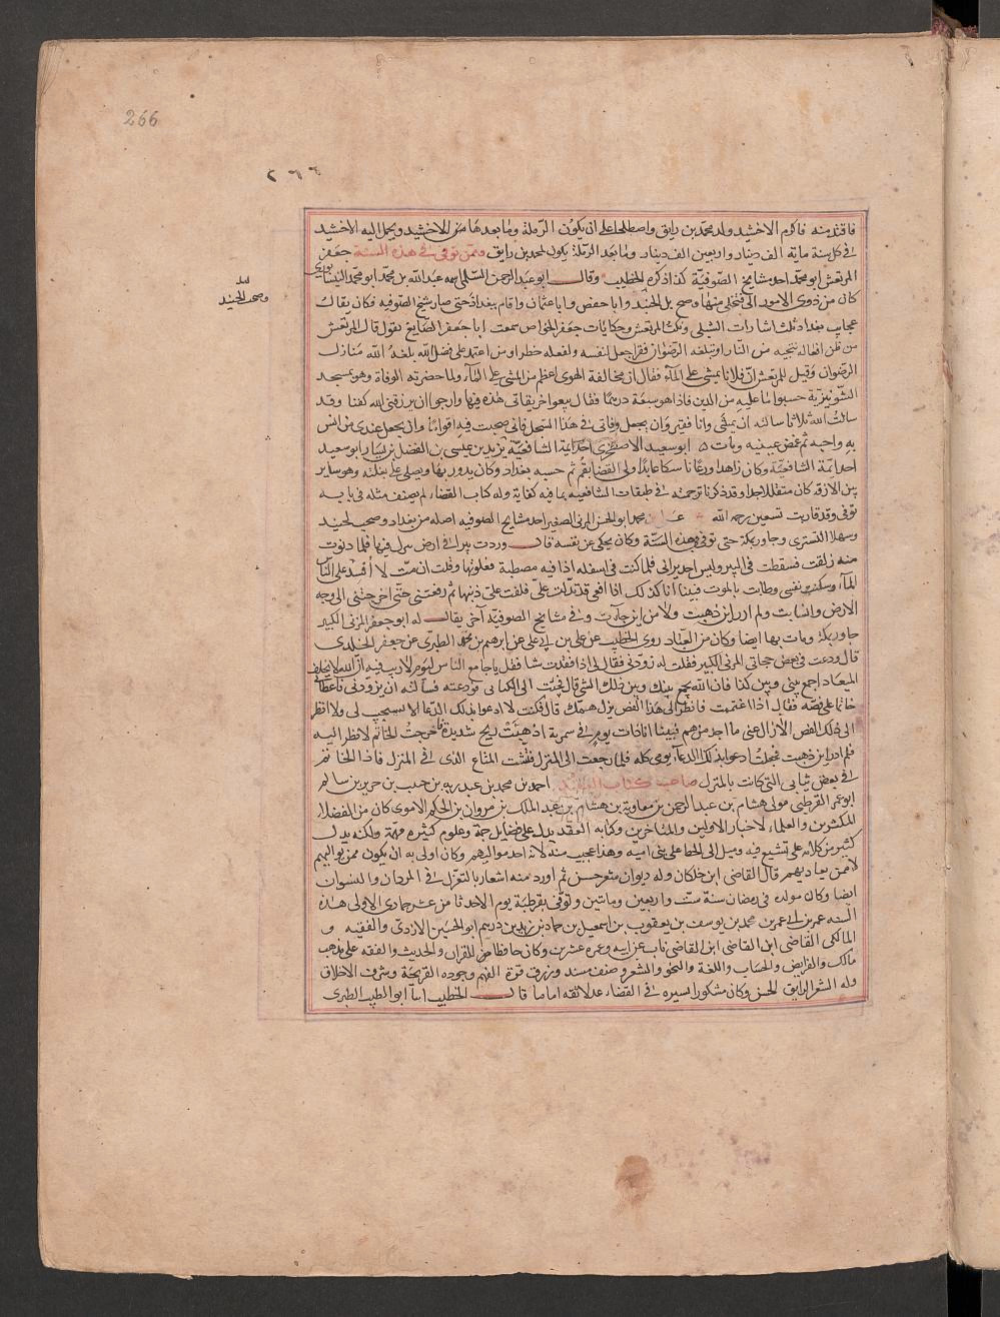 266
٢٦٦
فاقتد منه فاكرم الاخشيد ولد محمد بن رايق واصطلحا على ان يكون الرملة وما بعدها من للاخشيد ويحمل اليه الاخشيد
في كل سنة ماية الف دينار واربعين الف دينار وما بعد الرملة يكون لمحمد بن رايق وممن توفى في هذه السنة جعفر
المرتعش ابو محمد احد مشايخ الصوفية كذا ذكره الخطيب وقال ابو عبد الرحمن السلمى اسمه عبد الله بن محمد ابو محمد النيسابورى
كان من ذوى الاموال فتخلى منها وصحب الجنيد وابا حفص وابا عثمان واقام ببغداد حتى صار شيخ الصوفيه فكان يقال
وصحب الجنيد
عجايب بغداد ثلاث اشارات الشبلى ونكت المرتعش وحكايات جعفر الخواص سمعت ابا جعفر الصايغ يقول قال المرتعش
من ظن افعاله تنجيه من النار او تبلغه الرضوان فقد جعل لنفسه ولفعله خطرا ومن اعتمد على فضل الله بلغه الله منازل
الرضوان وقيل للمرتعش ان فلانا يمشى على المآء فقال ان مخالفة الهوى اعظم من المشى على المآء ولما حضرته الوفاة وهو بمسجد
الشونيزية حسبوا ما عليه من الدين فاذا هو سبعة درهما فقال بيعوا خريقاتى هذه فيها وارجو ان يرزقنى الله كفنا وقد
سالت الله ثلاثا سالته ان يميتنى وانا فقير وان يجعل وفاتى في هذا المسجد فانى صحبت فيه اقواما وان يجعل عندى من انس
به واحبه ثم غمض عينيه ومات ابو سعيد الاصطخرى احد ايمة الشافعية يزيد بن عيسى بن الفضل بن يسار ابو سعيد
احد ايمة الشافعية وكان زاهدا ورعا ناسكا عابدا ولى القضا بقم ثم حسبه بغداد وكان يدور بها ويصلى على بغلته وهو ساير
بين الازقه كان متقللا جدا وقد ذكرنا ترجمته في طبقات الشافعيه بما فيه كفاية وله كتاب القضا لم يصنف مثله في بابه
توفى وقد قارب تسعين رحمه الله محمد ابو الحسن المزنى الصغير احد مشايخ الصوفيه اصله من بغداد وصحب الجنيد
وسهلا التسترى وجاور بمكة حتى توفى بهذه السنة وكان يحكى عن نفسه قال وردت بيرا في ارض فيها فلما دنوت
منه زلقت فسقطت في البير وليس احد يرانى فلما كنت في اسفله اذا فيه مصطبة فعلوتها وقلت ان مت لا أفسد على الناس
المآء وسكنت نفسى وطابت بالموت فبينا انا كذلك اذا افعى قد تدلت على فلفت على ذنبها ثم رفعتنى حتى اخرجتنى الى وجه
الارض وانسابت ولم ادر اين ذهبت ولا من اين جاءت وفي مشايخ الصوفية آخر يقال له ابو جعفر المزنى الكبير
جاور بمكة ومات بها ايضا وكان من العباد روى الخطيب عن على بن ابى على عن ابرهيم بن محمد الطبرى عن جعفر الخلدى
قال ودعت في بعض حجاتى المزنى الكبير فقلت له زودنى فقال لى اذا فقدت شيا فقل يا جامع الناس ليوم لا ريب فيه ان الله لا يخلف
الميعاد اجمع بينى وبين كذا فان الله يجمع بينك وبين ذلك الشى قال فجئت الى الكتانى فودعته فسالته ان يزودنى فاعطانى
خاتما على فصه فقال اذا اغتممت فانظر الى هذا الفص يزل همك قال فكنت لا ادعو بذلك الدعا الا استجيب لى ولا انظر
الى ذلك الفص الا زال عنى ما اجد من هم فبينا انا ذات يوم في سمرية اذ هبت ريح شديدة فاخرجت الخاتم لانظر اليه
فلم ادر اين ذهبت فجعلت ادعو بذلك الدعآء يومى كله فلما رجعت الى المنزل فتشت المتاع الذى في المنزل فاذا الخاتم
في بعض ثيابى التى كانت بالمنزل صاحب كتاب العقد احمد بن محمد بن عبد ربه بن حبيب بن حدير بن سالم
ابو عمر القرطبى مولى هشام بن عبد الرحمن بن معاوية بن هشام بن عبد الملك بن مروان بن الحكم الاموى كان من الفضلا
المكثرين والعلماء لاخبار الاولين والمتاخرين وكتابه العقد يدل على فضايل جمة وعلوم كثيره مهمة ولكنه يدل
كثير من كلامه على تشيع فيه وميل الى الحط على بنى اميه وهذا عجيب منه لانه احد مواليهم وكان اولى به ان يكون ممن يواليهم
لا ممن يعاديهم قال القاضى ابن خلكان وله ديوان شعر حسن ثم اورد منه اشعارا بالتغزل في المردان والنسوان
ايضا وكان مولده في رمضان سنة ست واربعين ومائتين وتوفى بقرطبة يوم الاحد ثامن عشر جمادى الاولى هذه
السنه عمر بن ابى عمر بن محمد بن يوسف بن يعقوب بن اسمعيل بن حماد بن زيد بن درهم ابو الحسين الازدى والفقيه و
المالكى القاضى ابن القاضى ابن القاضى ناب عن ابيه وعمره عشرين وكان حافظا من للقران والحديث والفقه على مذهب
مالك والفرايض والحساب واللغة والنحو والشعر وصنف مسند ورزق قوة الفهم وجوده القريحة وشرف الاخلاق
وله الشعر الرايق الحسن وكان مشكورا لسيره في القضاء عدلا ثقه اماما قال الخطيب ابو الطيب الطبرى